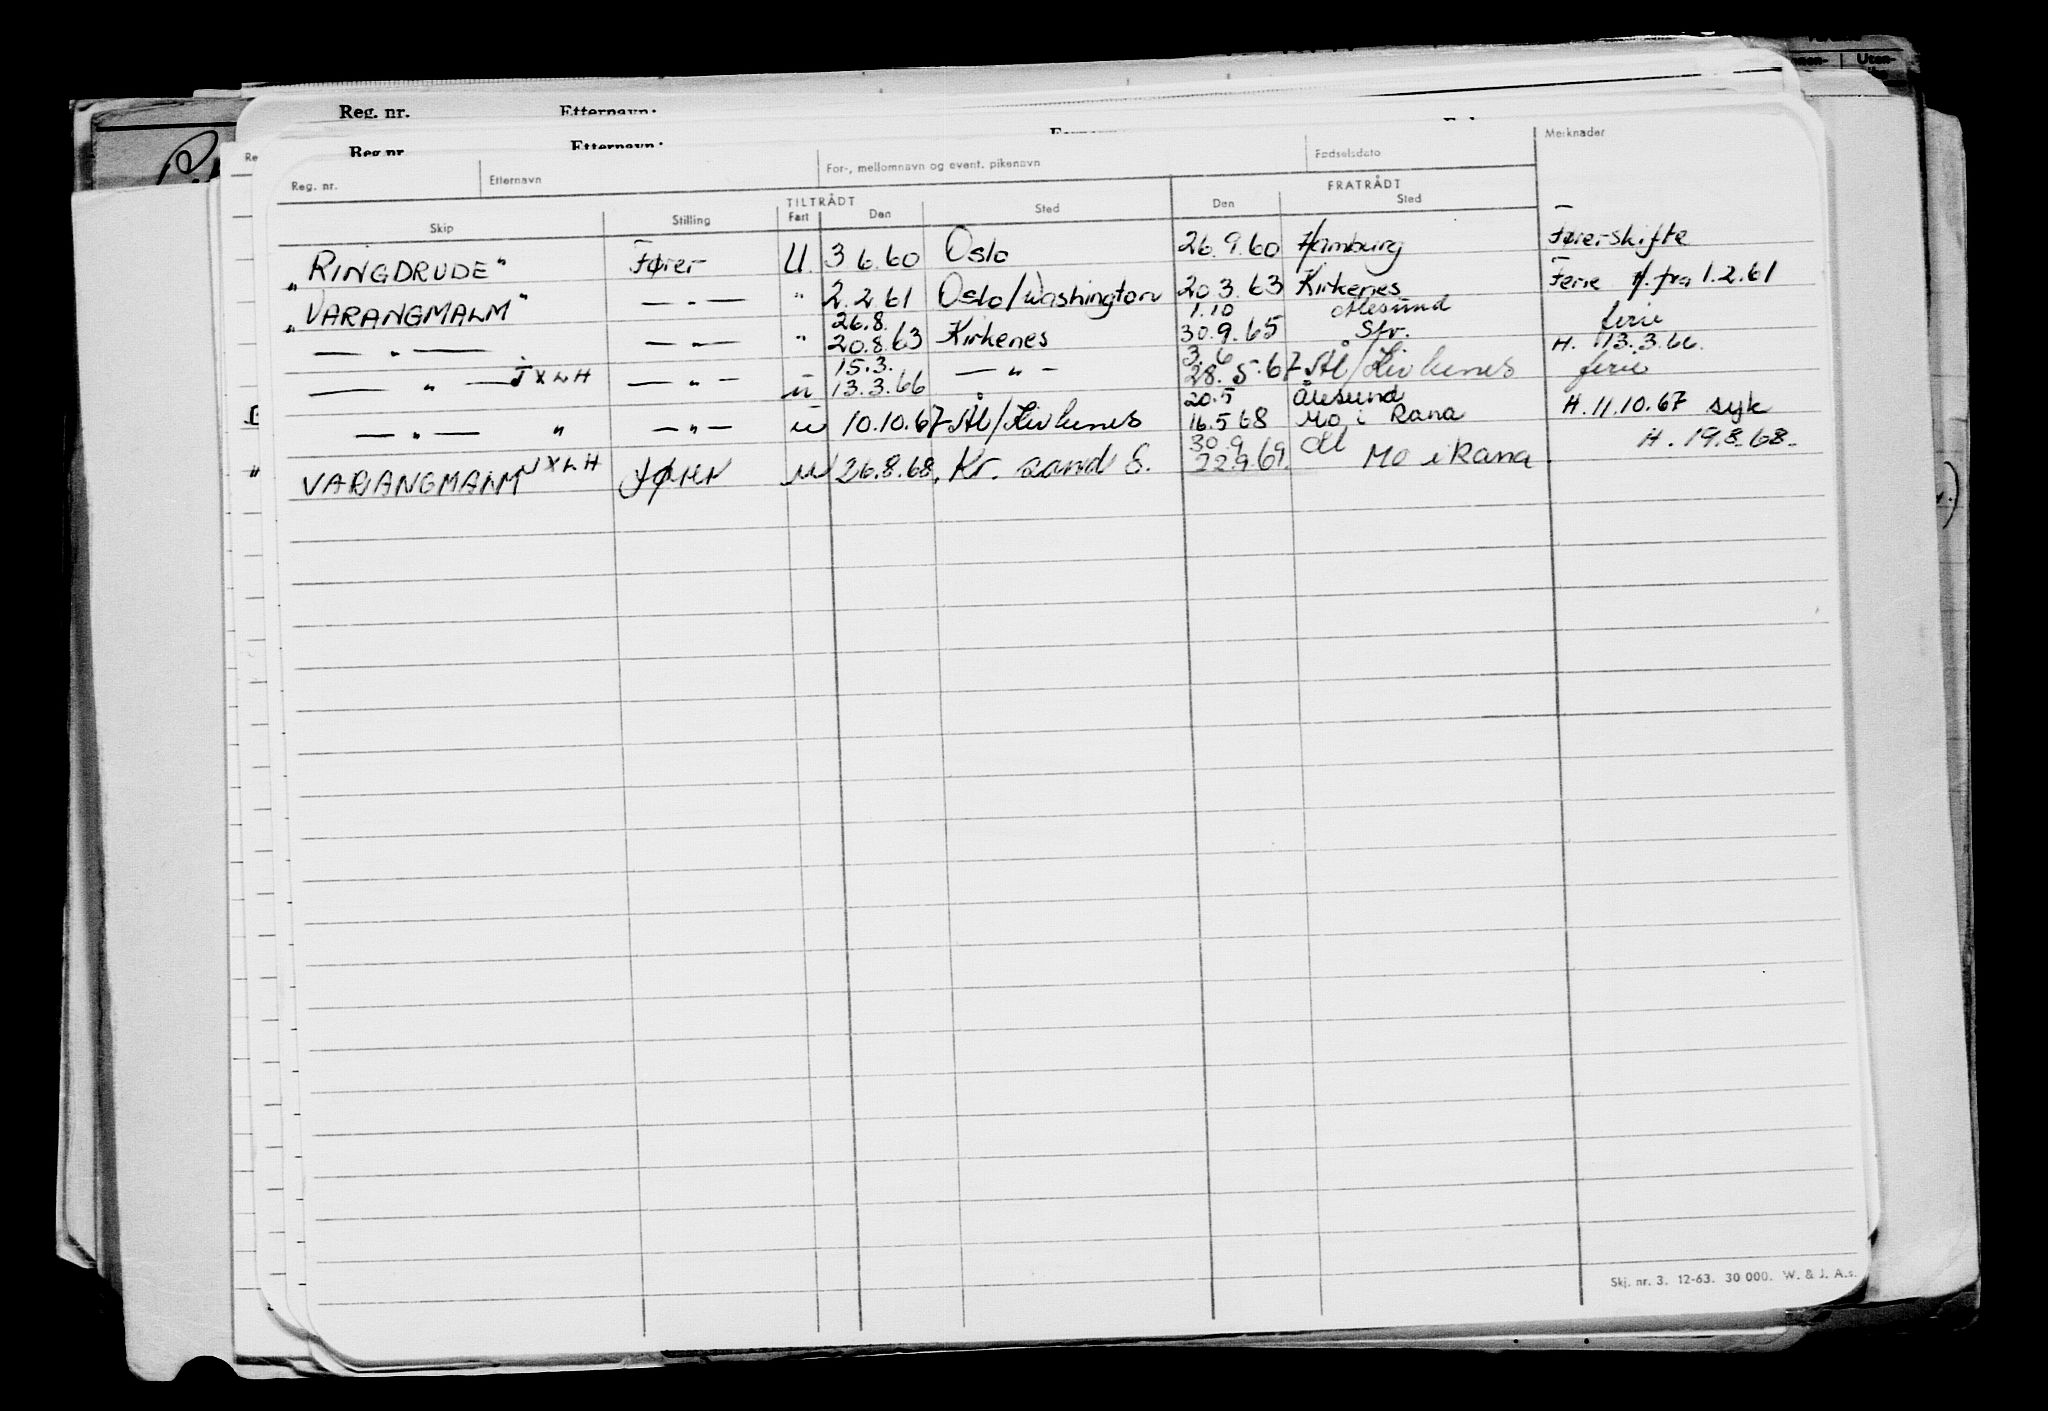 Reg. nr. Etternavn:
Reg. nr. Etternavn:
Reg. nr. Etternavn For-, mellomnavn og event. pikenavn Fødselsdato Merknader
TILTRÅDT FRATRÅDT
Skip Stilling Fart Den Sted Den Sted
"RINGDRUDE" Fører U. 3 6.60 Oslo 26.9.60 Hamburg Førerskifte
"VARANGMALM" — " — " 2.2.61 Oslo/Washington 20.3.63 Kirkenes Ferie fra 1.2.61
26.8. 1.10 Ålesund ferie
— " — — " — " 20.8.63 Kirkenes 30.9.65 H. 13.3.66.
15.3. 3.6
— " — JXLH — " — u 13.3.66 — " — 28.5.67 Ål/Kirkenes ferie
20.5 Ålesund
— " — " — " — u 10.10.67 Ål/Kirkenes 16.5.68 Mo i Rana H. 11.10.67 syk
30.9 H. 19.8.68.
VARANGMALM JXLH fører u 26.8.68. Kr. sand S. 22.9.69. Mo i Rana
Skj. nr. 3. 12-63. 30 000. W. & J. A.s.